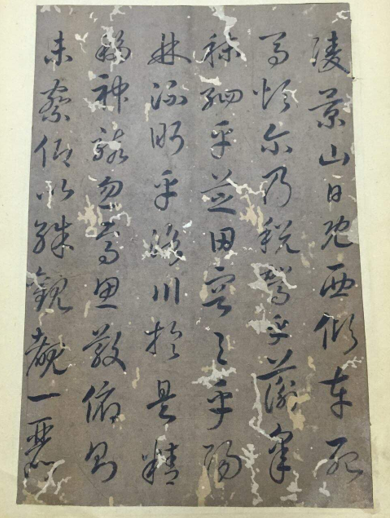 陵景山日既西傾車殆
馬煩尔乃税駕乎蘅皋
秣駟乎芝田容与乎陽
林流眄乎洛川於是精
移神駭忽焉思散俯則
未察仰以殊觀覩一麗